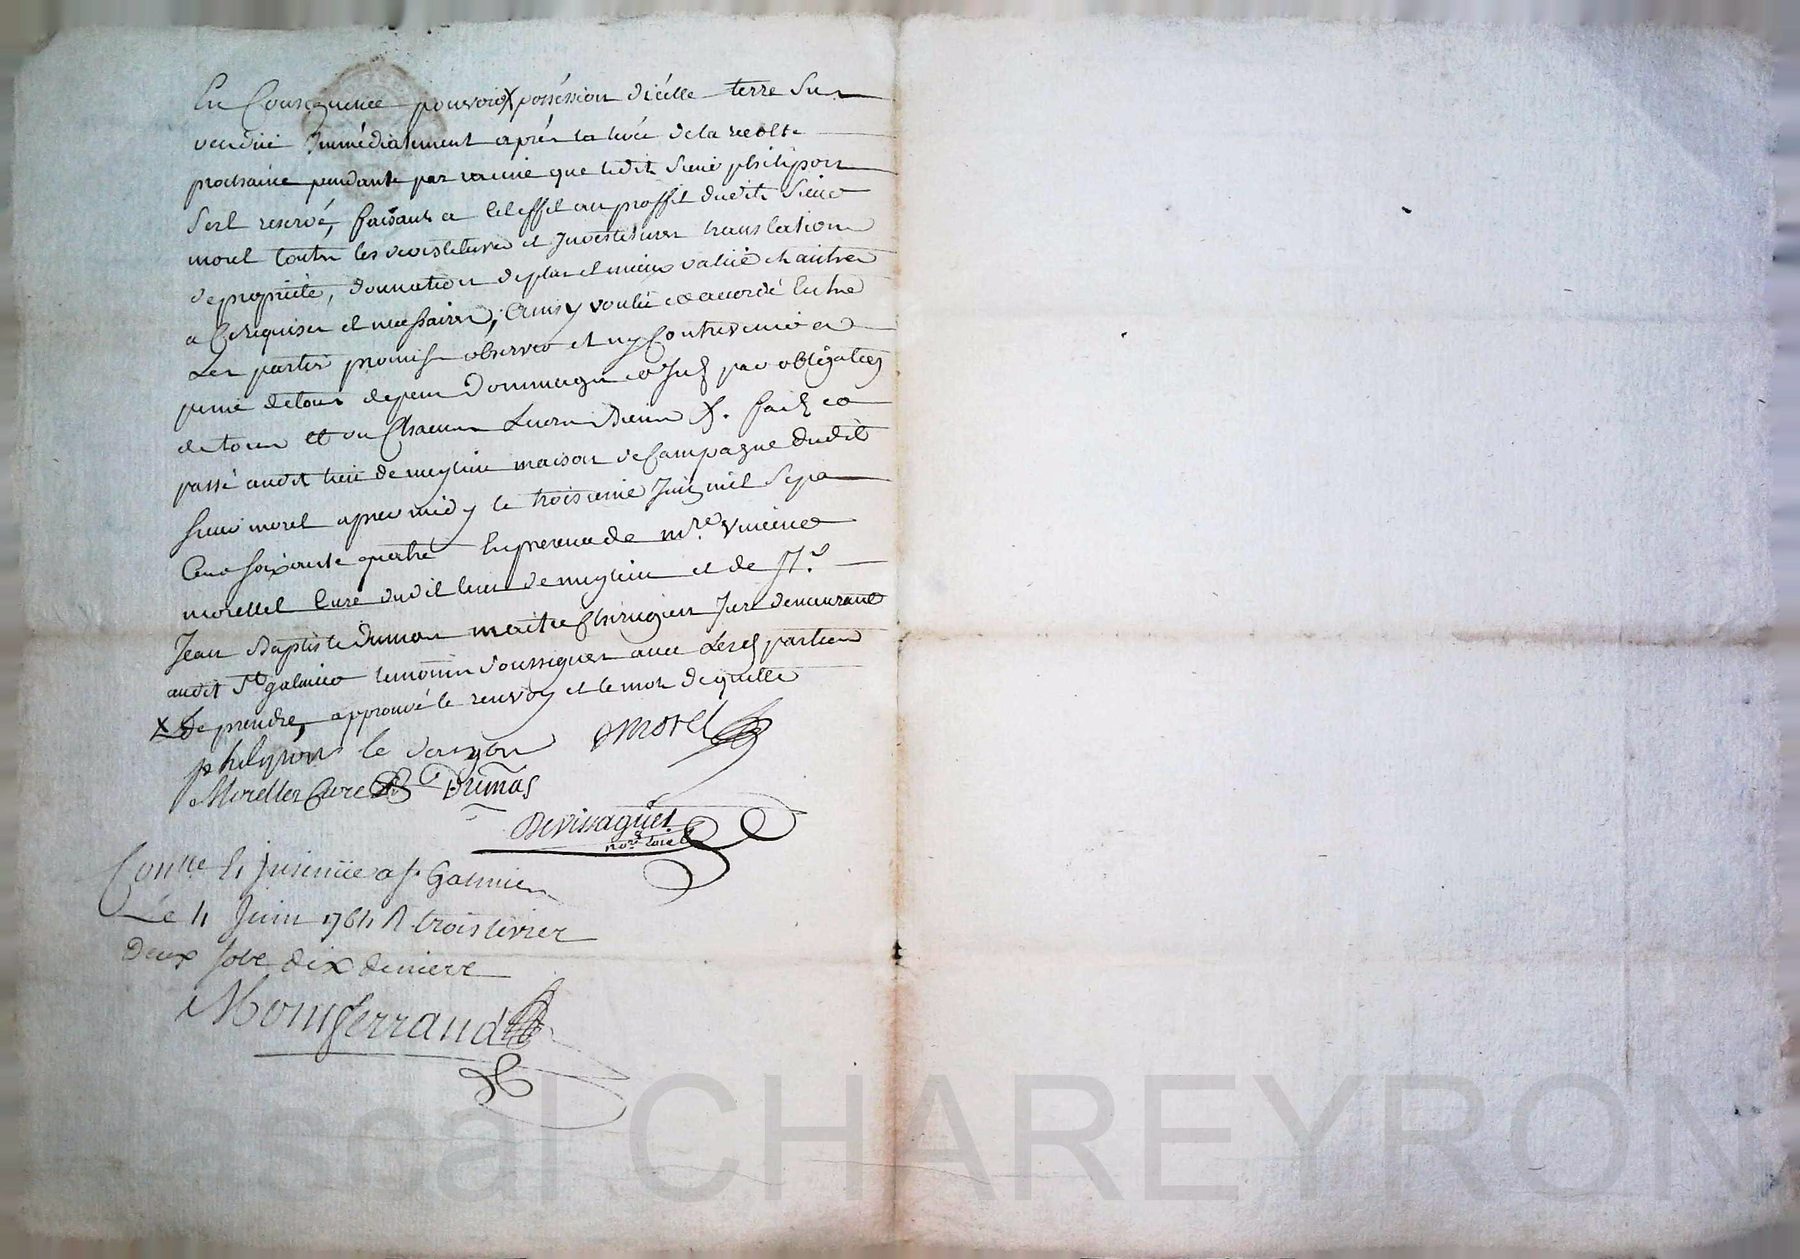 En Consequence pouvoir X possession d'icelle terre Sus
vendue Immédiatement aprés la levée de la recolte
prochaine pendante par racine que ledit Sieur philipon
Sest reservé, faisant a cet effet au proffit dudit Sieur
morel toutes les devestitures et Investitures translation
de proprieté, donnation de plus et mieux vallüe et autres
a Ce requises et necessaires, Ainsy voullu et accordé Entre
Les parties promis observer et ny Contrevenir a
peine de tous depens Dommages et Jnts par obligations
de tous et un Chacun Leurs Biens &. fait et
passé audit lieu de meylieu maison de Campagne dudit
Sieur morel apres midy le troisieme Juin mil Sept
Cens soixante quatre En presence de mre. Vincent
morellet Curé dudit lieu de meylieu et de Sr.
Jean Baptiste Dumas maitre Chirurgien Juré demeurant
audit St. galmier temoins soussignes avec Lesd. parties
X De prendre, approuvé le renvoy et le mot dicelle
philipon le danyon Morel
Morellet Curé Dumas
Devissaguet
nore. Royal
Contlé Et Insinué a St Galmier
Le 4 Juin 1764 R trois livres
Deux sols dix deniers
Montferrand
ascal CHAREYRON